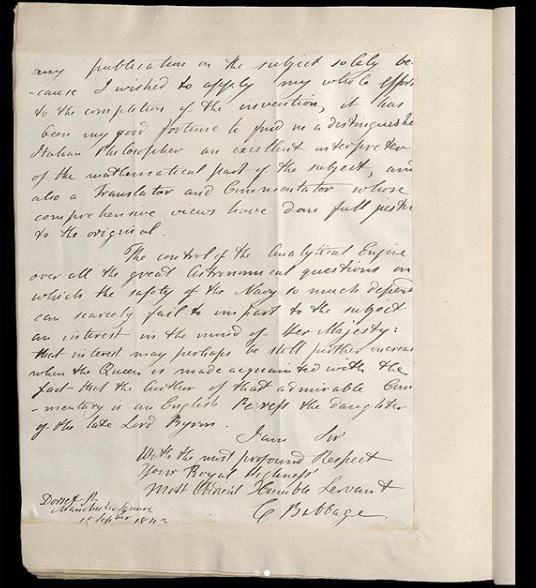 my publication on the subject solely be-
-cause I wished to apply my whole efforts
to the completion of the invention, it has
been my good fortune to find in a distinguished
Italian Philosopher an excellent interpreter
of the mathematical part of the subject, and
also a Translator and Commentator whose
comprehensive views have done full justice
to the original.
The control of the Analytical Engine
over all the great Astronomical questions on
which the safety of the Navy so much depends
can scarcely fail to impart to the subject
an interest in the mind of Her Majesty:
that interest may perhaps be still further increas
when the Queen is made acquainted with the
fact that the Author of that admirable Com
-mentary is an English Peeress the daughter
of the late Lord Byron.
I am Sir
With the most profound Respect
Your Royal Highness'
Most Obedient Humble Servant
C Babbage
Dorset St
Manchester Square